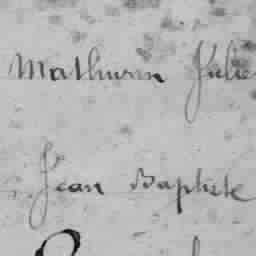 Mathurin Julie
Jean Baptiste